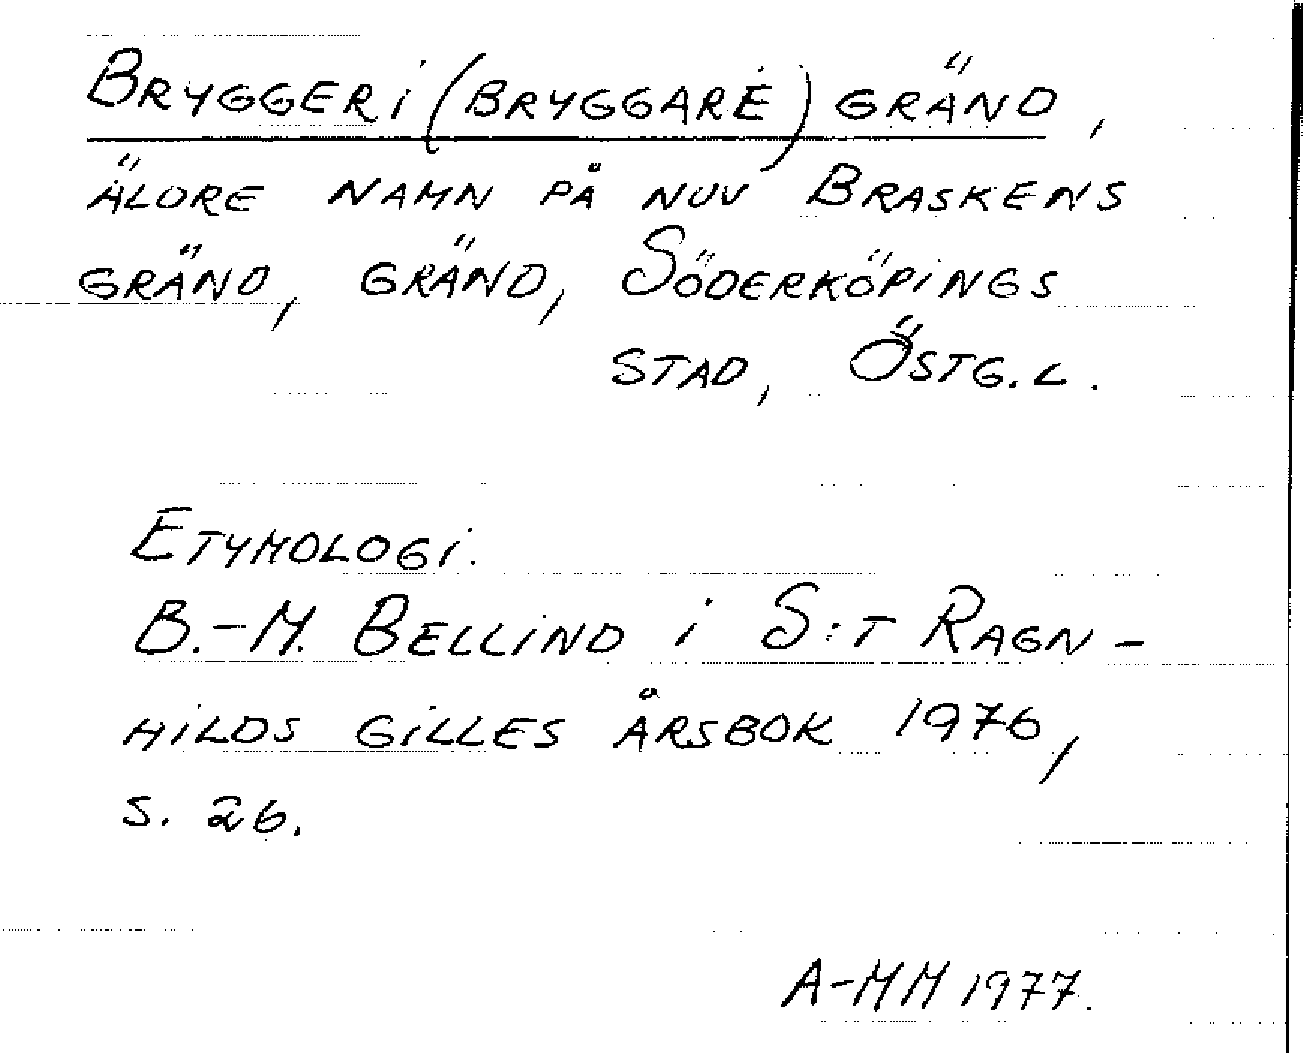 Bryggeri(bryggare)gränd,
äldre namn på nuv Braskens
gränd, gränd, Söderköpings
stad, Östg.l.
Etymologi.
B.-M. Bellind i S:t Ragn-
hilds gilles årsbok 1976,
s. 26.
A-MM 1977.